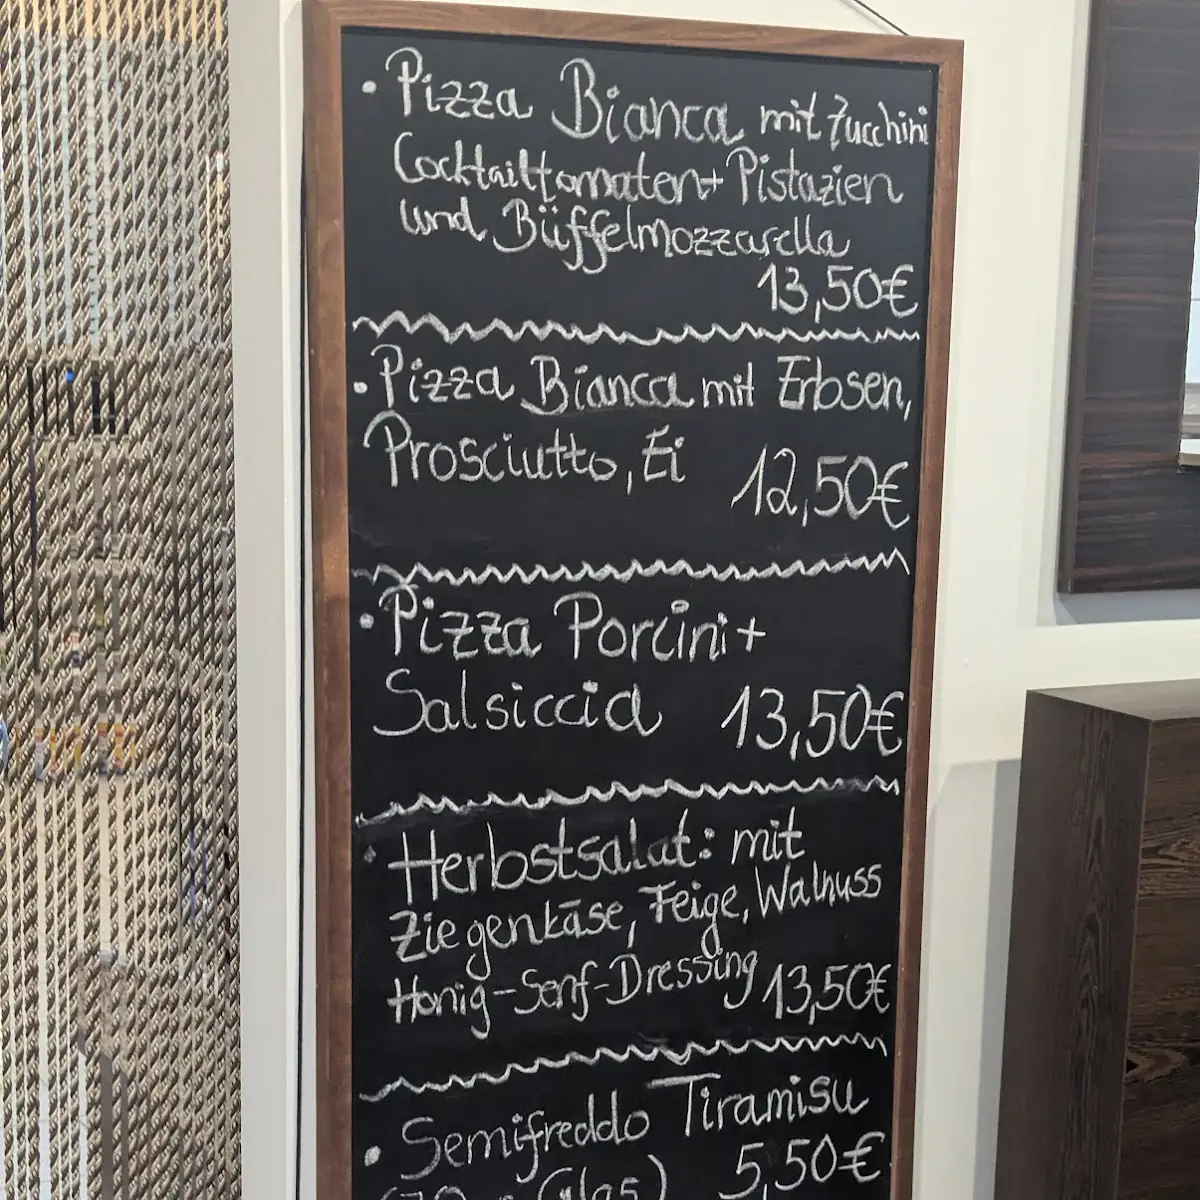 • Pizza Bianca mit Zucchini
Cocktailtomaten + Pistazien
und Büffelmozzarella
13,50€
• Pizza Bianca mit Erbsen,
Prosciutto, Ei 12,50€
• Pizza Porcini +
Salsiccia 13,50€
• Herbstsalat: mit
Ziegenkäse, Feige, Walnuss
Honig-Senf-Dressing 13,50€
• Semifreddo Tiramisu
5,50€